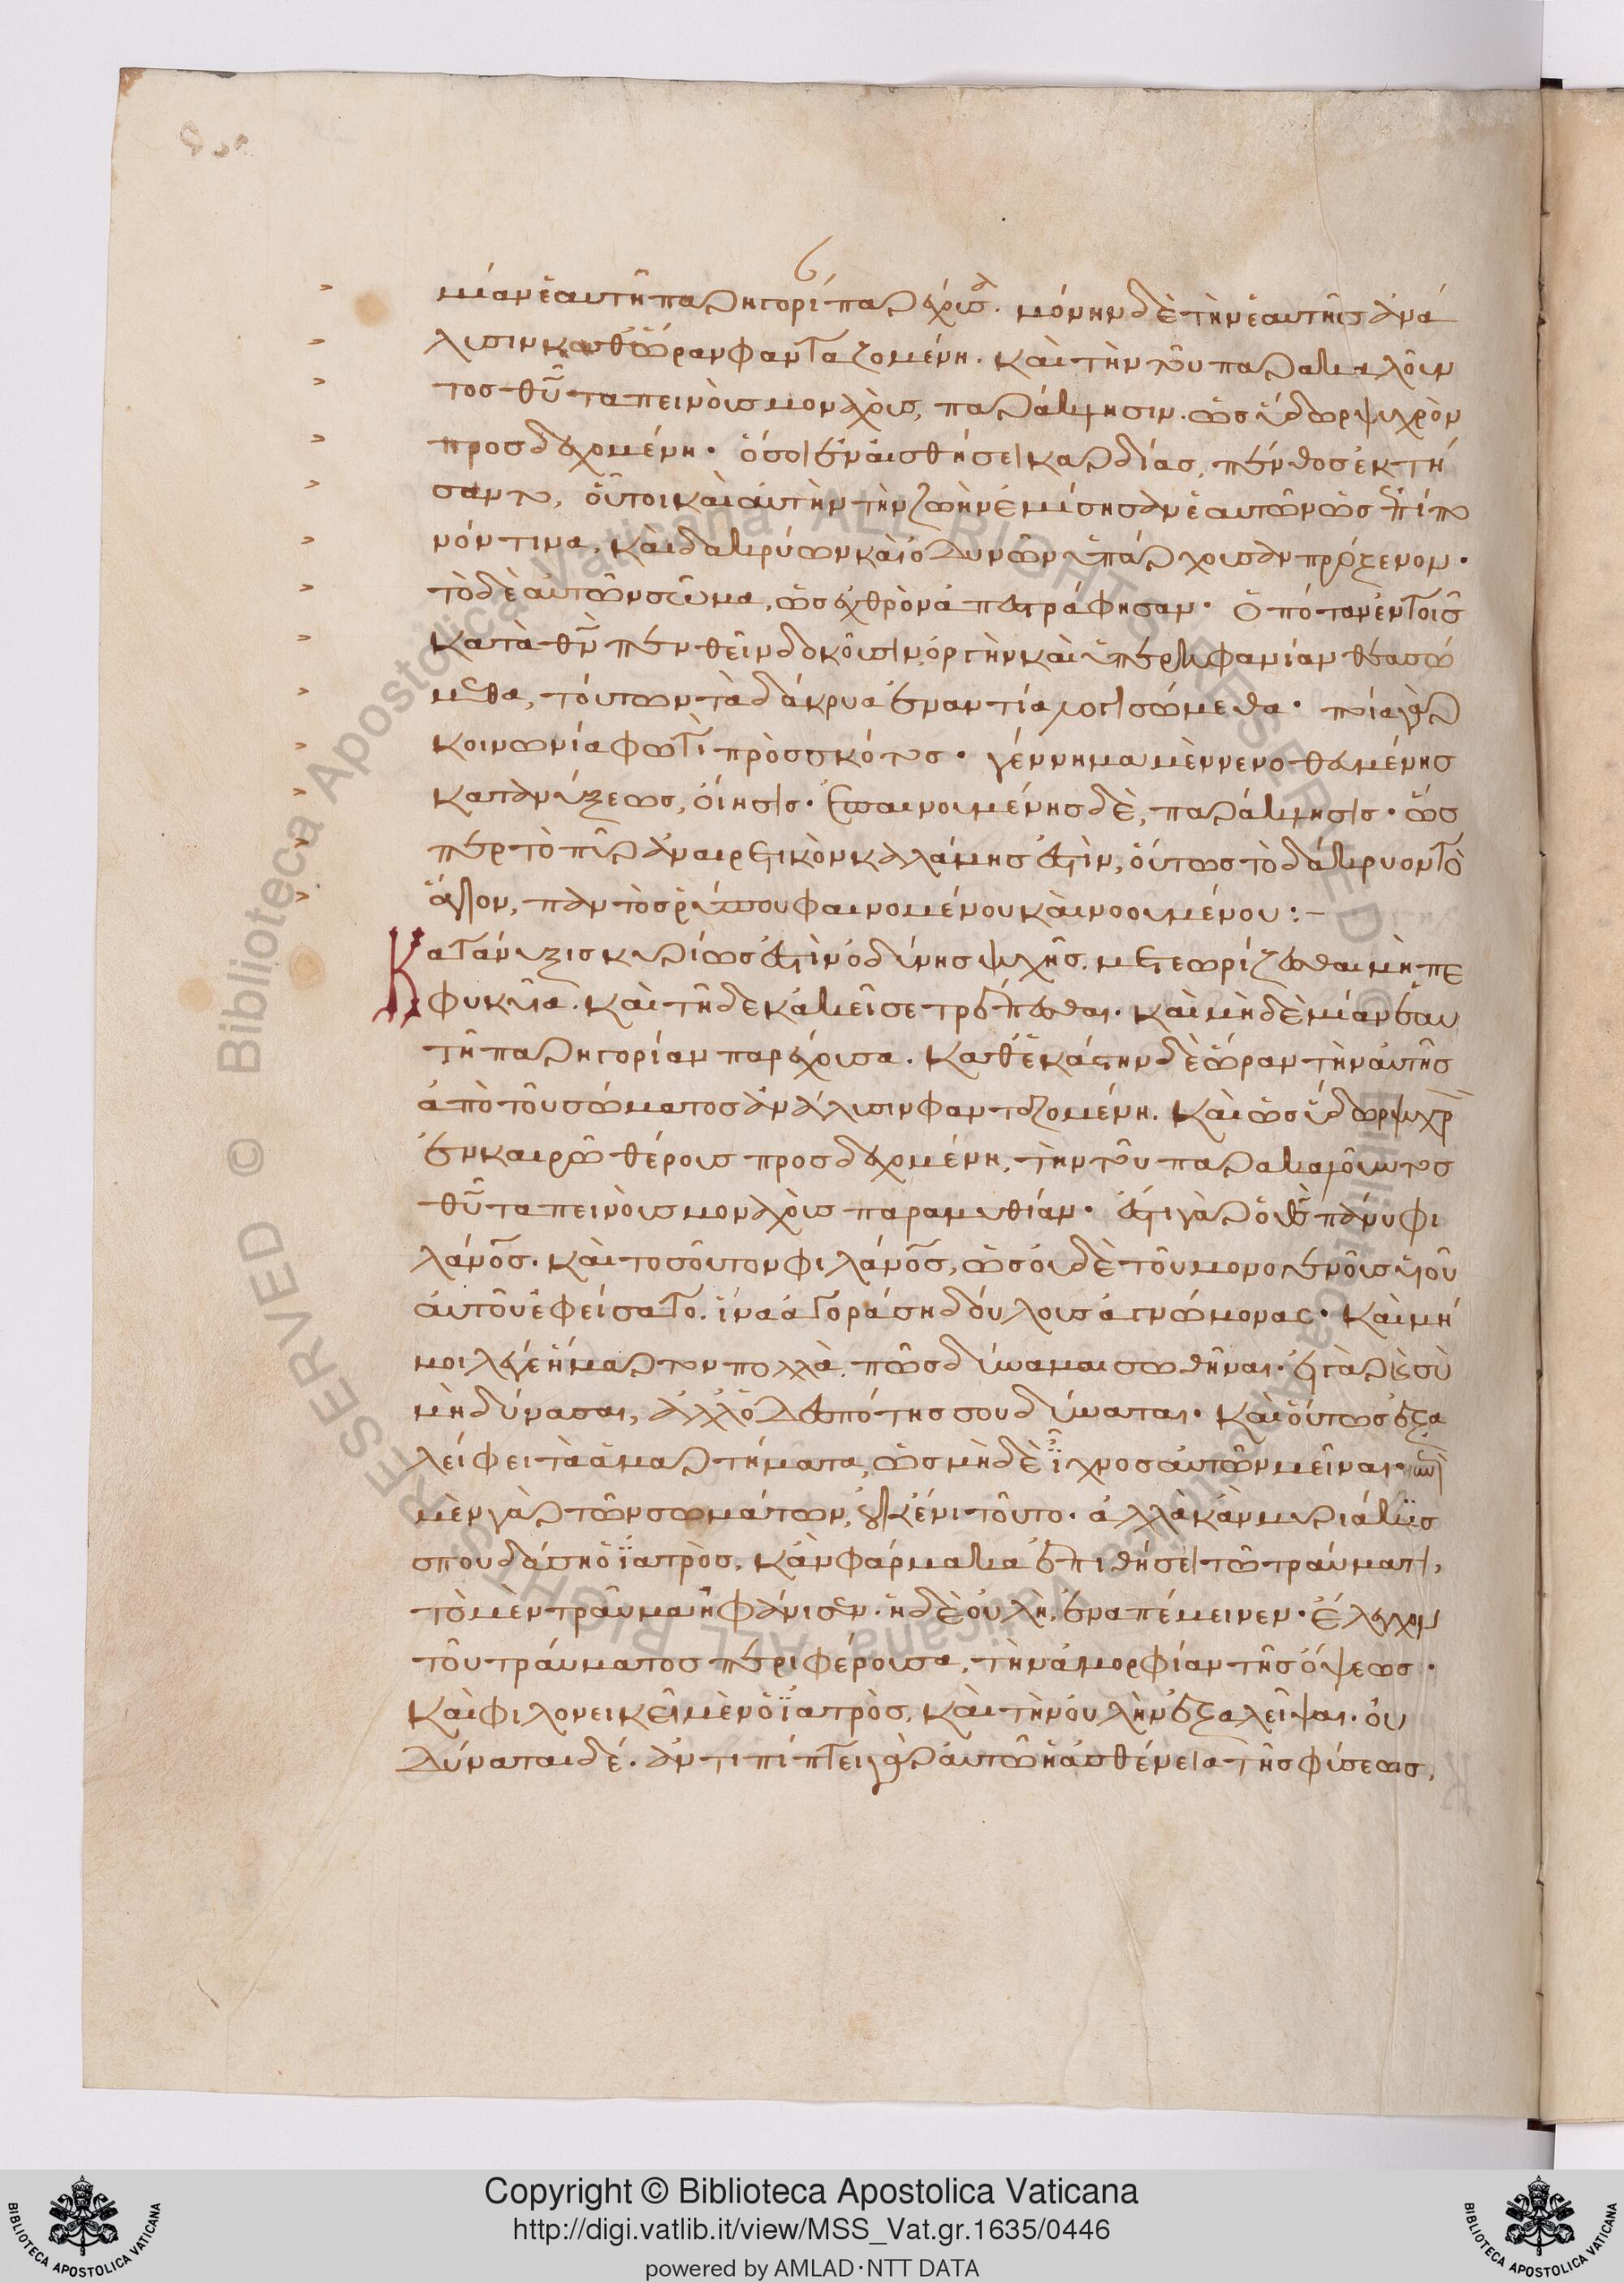 μίαν ἑαυτῆ παρηγορί παρέχουσα. μόνην δὲ τὴν ἑαυτῆς ἀνά
λυσιν καθ' ὥραν φανταζομένη. καὶ τὴν τοῦ παρακαλοῦν
τος θῦ ταπεινοὺς μοναχοὺς, παράκλησιν. ὡς ὕδωρ ψυχρὸν
προσδεχομένη. ὅσοι ἐν αἰσθήσει καρδίας, πένθος ἐκτή
σαντο, οὗτοι καὶ αὐτὴν τὴν ζωὴν ἐμίσησαν ἑαυτῶν ὡς ἐπίπο
νόν τινα, καὶ δακρύων καὶ ὀδυνῶν ὑπάρχουσαν πρόξενον.
τὸ δὲ αὐτῶν σῶμα, ὡς ἐχθρὸν ἀπεστράφησαν. ὁπόταν ἐν τοῖς
κατὰ θν̄ πενθεῖν δοκοῦσιν ὀργὴν καὶ ὑπερηφανίαν θεασώ
μεθα, τούτων τὰ δάκρυα ἐναντία λογισώμεθα. ποία γὰρ
κοινωνία φωτὶ πρὸς σκότος. γέννημα μὲν νενοθευμένης
κατανύξεως, οἴησις. ἐπαινουμένης δὲ, παράκλησις. ὥσ
περ τὸ πῦρ ἀναιρετικὸν καλάμης ἐστὶν, οὕτως τὸ δάκρυον τὸ
ἁγνὸν, παντὸς ῥύπου φαινομένου καὶ νοουμένου:-
Κατάνυξις κυρίως ἐστὶν ὀδύνης ψυχῆς. μετεωρίζεσθαι μὴ πε
φυκυῖα. καὶ τῆδε κἀκεῖσε τρέπεσθαι. καὶ μηδὲ μίαν ἑαυ
τῆ παρηγορίαν παρέχουσα. καθ' ἑκάστην δὲ ὥραν τὴν αὐτῆς
ἀπὸ τοῦ σώματος ἀνάλυσιν φανταζομένη. καὶ ὡς ὕδωρ ψυχρ
ἐν καιρῶ θέρους προσδεχομένη, τὴν τοῦ παρακαλοῦντος
θῦ ταπεινοὺς μοναχοὺς παραμυθίαν. ἔστι γὰρ ὁ θς̄ πάνυ φι
λάνος. καὶ τοσοῦτον φιλάνος, ὡς οὐδὲ τοῦ μονογενοῦς υἱοῦ
αὐτοῦ ἐφείσατο. ἵνα ἀγοράση δούλους ἀγνώμονας. καὶ μή
μοι λέγε ἥμαρτον πολλὰ. πῶς δύναμαι σωθῆναι. εἰ γὰρ καὶ σὺ
μὴ δύνασαι, ἀλλ' ὁ δεσπότης σου δύναται. καὶ οὕτως ἐξα
λείφει τὰ ἁμαρτήματα, ὡς μηδὲ ἴχνος αὐτῶν μεῖναι. ἐπὶ
μὲν γὰρ τῶν σωμάτων, οὐκ ἔνι τοῦτο. ἀλλὰ κἂν μυριάκις
σπουδάση ὁ ἰατρὸς. κἂν φάρμακα ἐπιθήσει τῶ τραύματι,
τὸ μὲν τραῦμα ἠφάνισεν. ἡ δὲ οὐλὴ, ἐναπέμεινεν. ἔλεγχον
τοῦ τραύματος περιφέρουσα, τὴν ἀμορφίαν τῆς ὄψεως.
καὶ φιλονεικεῖ μὲν ὁ ἰατρὸς, καὶ τὴν οὐλὴν ἐξαλεῖψαι. οὐ
δύναται δέ. ἀντιπίπτει γὰρ αὐτῶ ἡ ἀσθένεια τῆς φύσεως,
Copyright © Biblioteca Apostolica Vaticana
http://digi.vatlib.it/view/MSS_Vat.gr.1635/0446
powered by AMLAD·NTT DATA